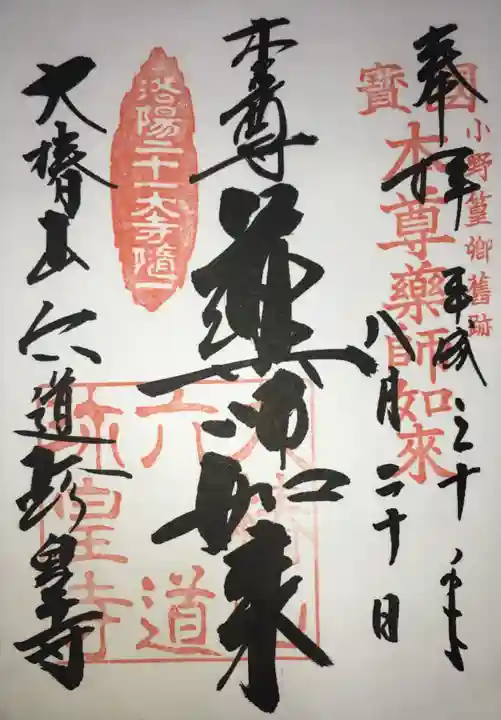 奉拝
平成三十年
八月二十日
國寶
小野篁郷舊跡
本尊藥師如來
本尊
薬師如来
洛陽二十一大寺随一
大椿山
六道
珍皇寺
大椿山六道珍皇寺